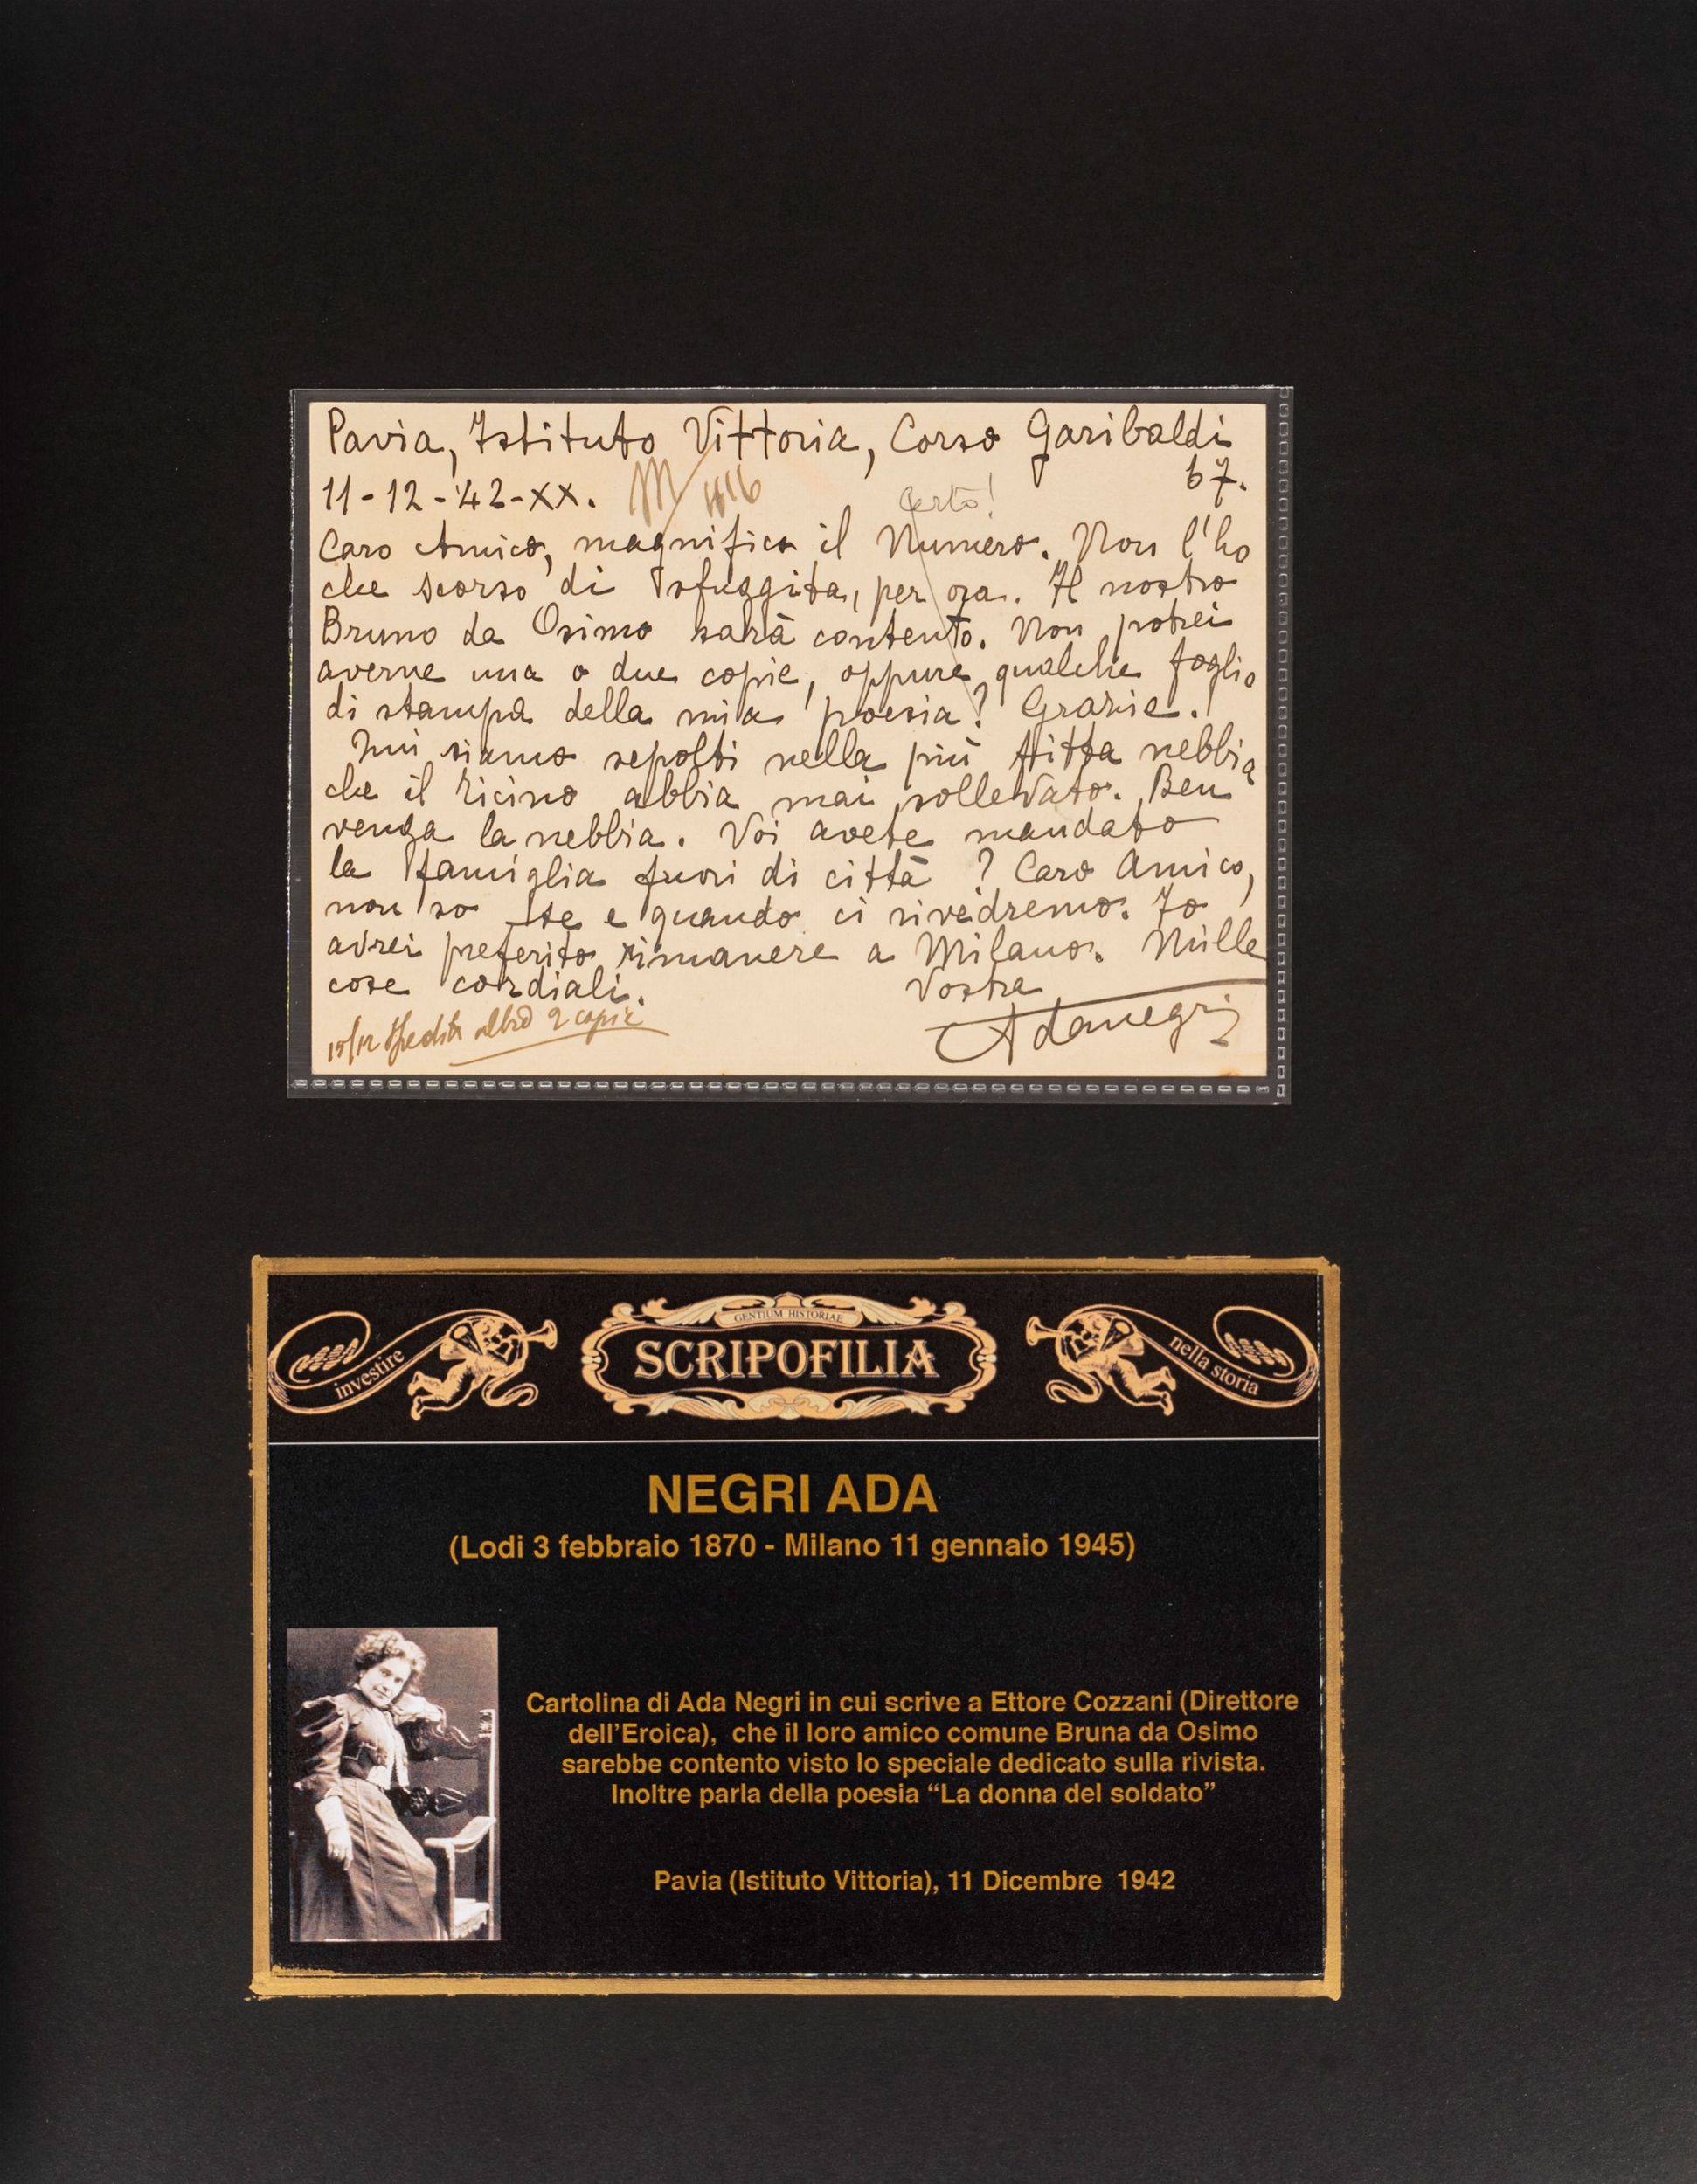 Pavia, Istituto Vittoria, Corso Garibaldi
67.
11-12-'42-XX.
Certo!
Caro Amico, magnifico il Numero. Non l'ho
che scorso di sfuggita, per ora. Il nostro
Bruno da Osimo sarà contento. Non potrei
averne una o due copie, oppure qualche foglio
di stampa della mia poesia? Grazie.
Qui siamo sepolti nella più fitta nebbia
che il Ticino abbia mai sollevato. Ben
venga la nebbia. Voi avete mandato
la famiglia fuori di città? Caro Amico,
non so se e quando ci rivedremo. Io
avrei preferito rimanere a Milano. Mille
cose cordiali. Vostra
Adanegri
15/12 Spedita 2 copie
GENTIUM HISTORIAE
investire SCRIPOFILIA nella storia
NEGRI ADA
(Lodi 3 febbraio 1870 - Milano 11 gennaio 1945)
Cartolina di Ada Negri in cui scrive a Ettore Cozzani (Direttore
dell'Eroica), che il loro amico comune Bruna da Osimo
sarebbe contento visto lo speciale dedicato sulla rivista.
Inoltre parla della poesia “La donna del soldato”
Pavia (Istituto Vittoria), 11 Dicembre 1942